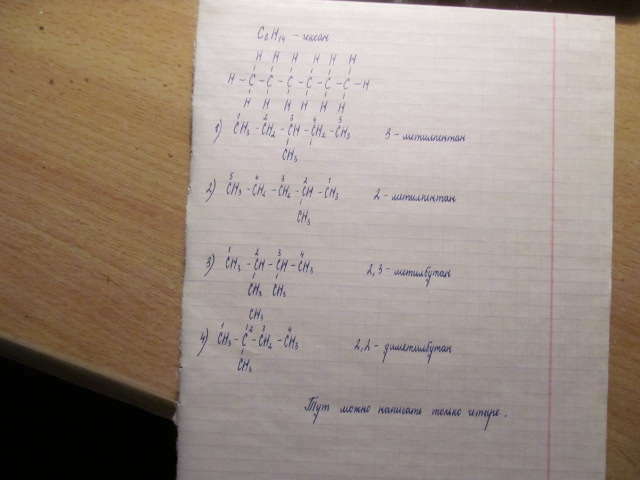 C₆H₁₄ – гексан
H H H H H H
H – C – C – C – C – C – C – H
H H H H H H
1 2 3 4 5
1) CH₃ – CH₂ – CH – CH₂ – CH₃ 3 – метилпентан
CH₃
5 4 3 2 1
2) CH₃ – CH₂ – CH₂ – CH – CH₃ 2 – метилпентан
CH₃
1 2 3 4
3) CH₃ – CH – CH – CH₃ 2,3 – метилбутан
CH₃ CH₃
CH₃
1 2 3 4
4) CH₃ – C – CH₂ – CH₃ 2,2 – диметилбутан
CH₃
Тут можно написать только четыре.